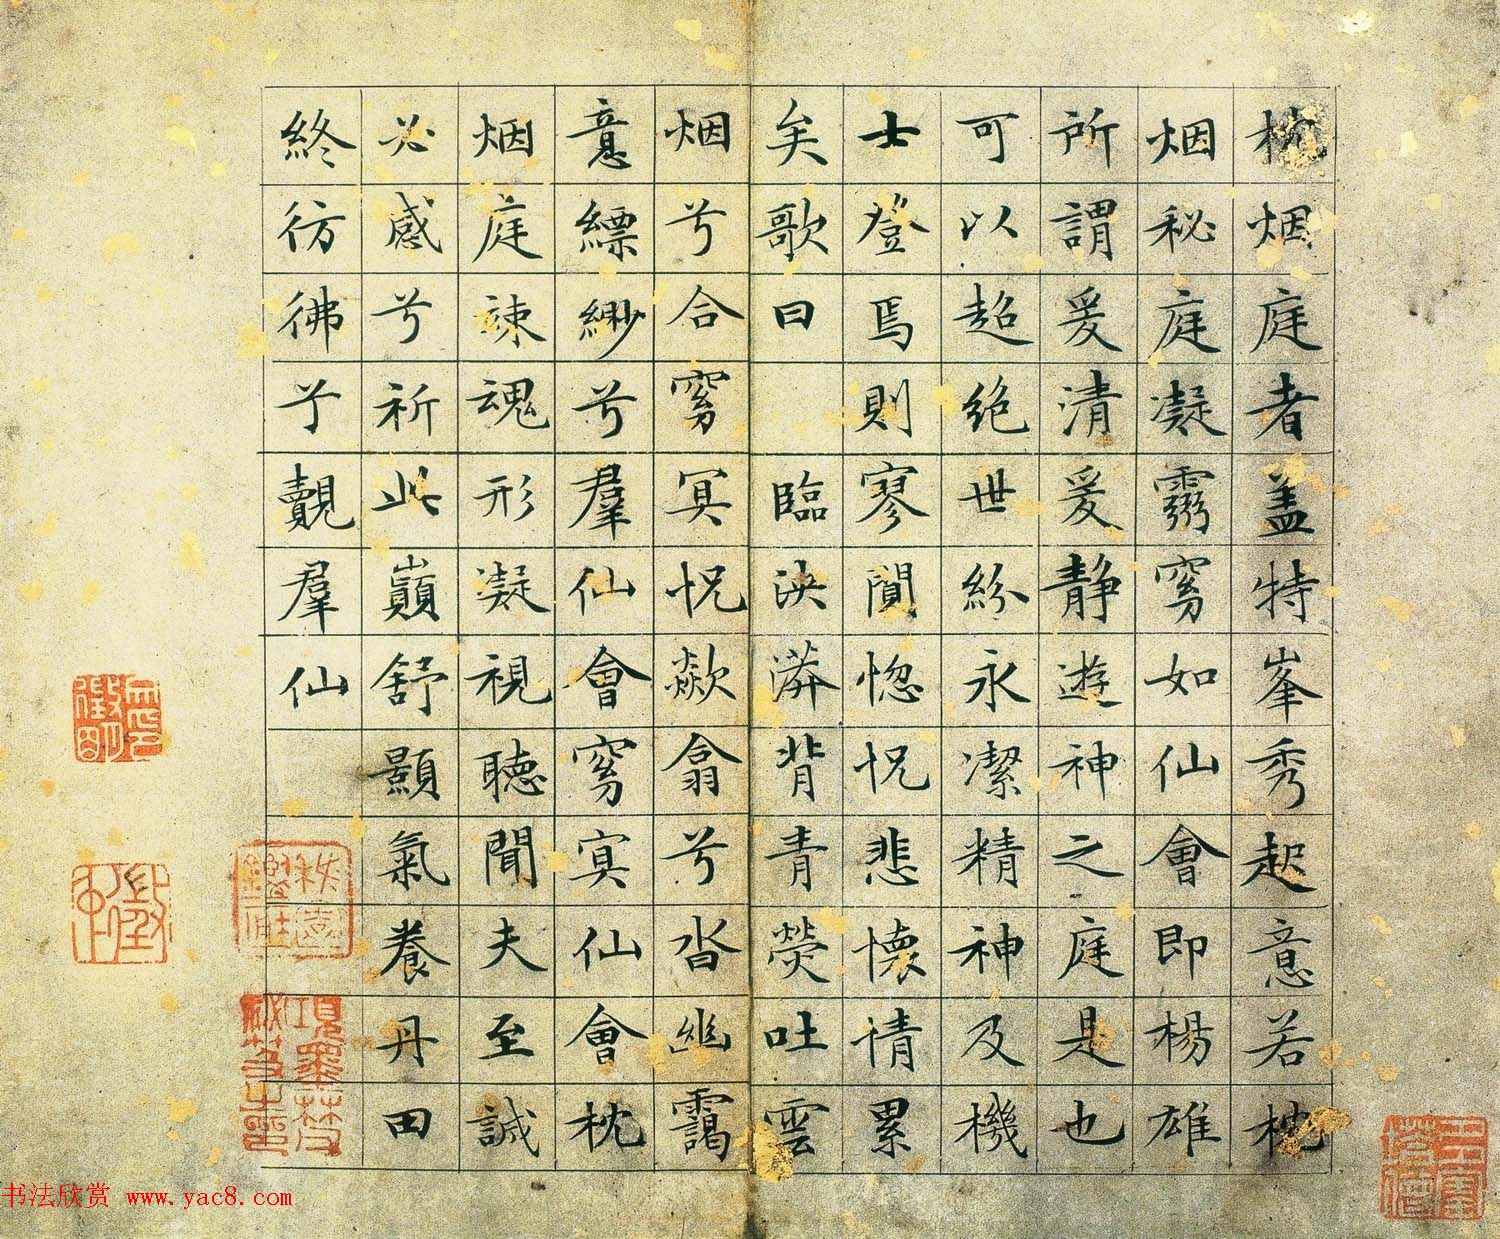 枕烟庭者盖特峯秀起意若枕
烟秘庭凝霛窅如仙會即楊雄
所謂爰清爰静遊神之庭是也
可以超絶世紛永潔精神及機
士登焉則寥閴惚怳悲懷情累
矣歌曰 臨泱漭背青熒吐雲
烟兮合窅冥怳欻翕兮沓幽靄
意縹緲兮羣仙會窅冥仙會枕
烟庭竦魂形凝視聽聞夫至誠
必感兮祈此巔舒顥氣養丹田
終彷彿兮覿羣仙
书法欣赏 www.yac8.com